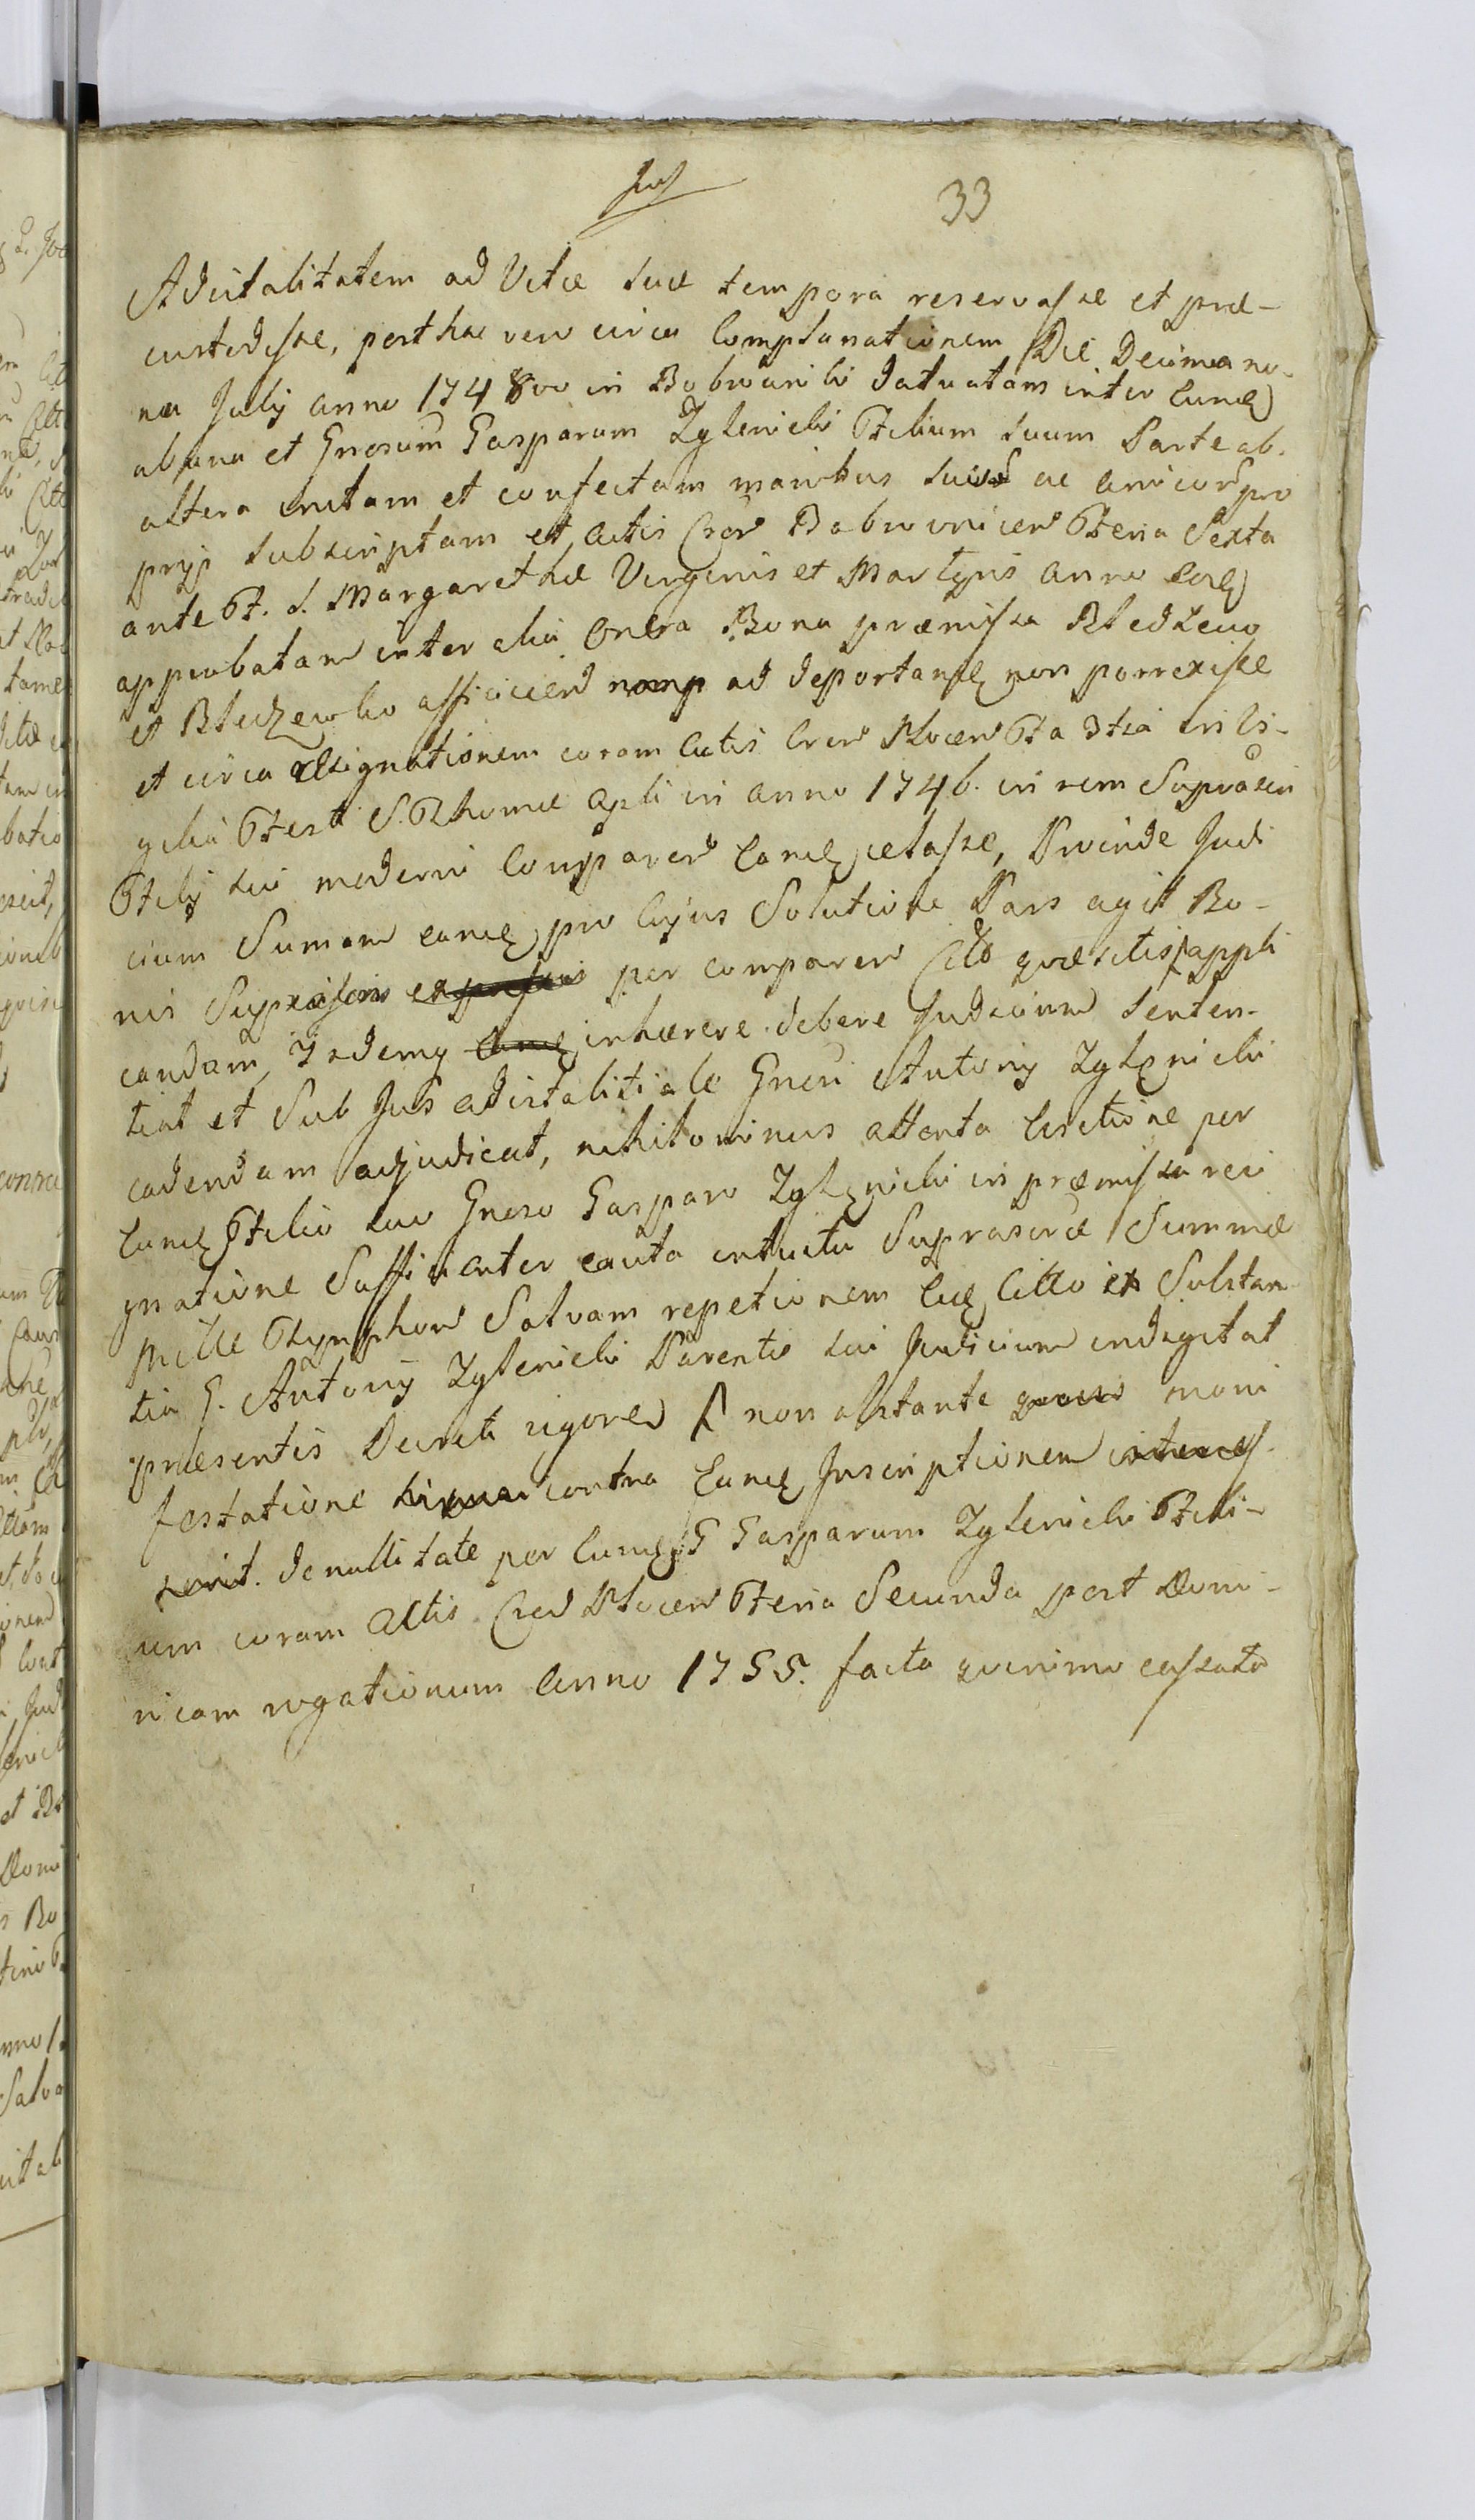 Jus
33
Advitalitatem ad Vitæ suæ tempora reservasse et præ-
custodisse, post hac vero circa Complanationem Die Decima no-
na July Anno 1748vo in Bobrowniki datuatam inter Eund
ab una et Gnosum Gasparum Zglenicki Filium suum Parte ab
altera initam et confectam manibus suis ac Amicor pro
prys subscriptam et Actis Cser Bobrovnicen Feria Sexta
ante F. S. Margarethæ Virginis et Martyris Anno Eod
approbatam inter alia Onera Bona præmissa Bledzewo
et Bledzewko afficien ad deportand non porrexisse
et circa resignationem coram Actis Cren Plocen Fa 3tia in Vi-
gilia Festi S. Thomæ Apli in Anno 1746. in rem Suprascri
Filij sui moderni Comparen Eand celasse, Proinde Judi
cium Sumam eand pro cujus Solutione Pars agit Bo-
nis per comparen Cito quæsitis appli
candam, Iisdemq inhærere debere Judicium senten-
tiat et Sub Jus advitalitiale Gnosi Antony Zglenicki
cadendam adjudicat, nihilominus attenta Cessione per
Eund Filio suo Gnoso Gasparo Zglenicki in præmissa resi
gnatione Sufficienter cauta intuitu Suprascræ Summæ
Mille Tymphor Salvam repetionem Eid Citto ex Substan
tia G. Antony Zglenicki Parentis sui Judicium indigitat
præsentis Decreti vigore non obstante mani
festatione contra Eand Inscriptionem
de nullitate per Eund G Gasparum Zglenicki Fili-
um coram Actis Cren Plocen Feria Secunda post Domi-
nicam rogationum Anno 1755. facta quinimo cassata